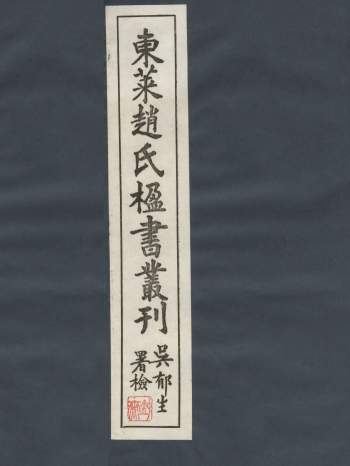 東萊趙氏楹書叢刊
吳郁生
署檢